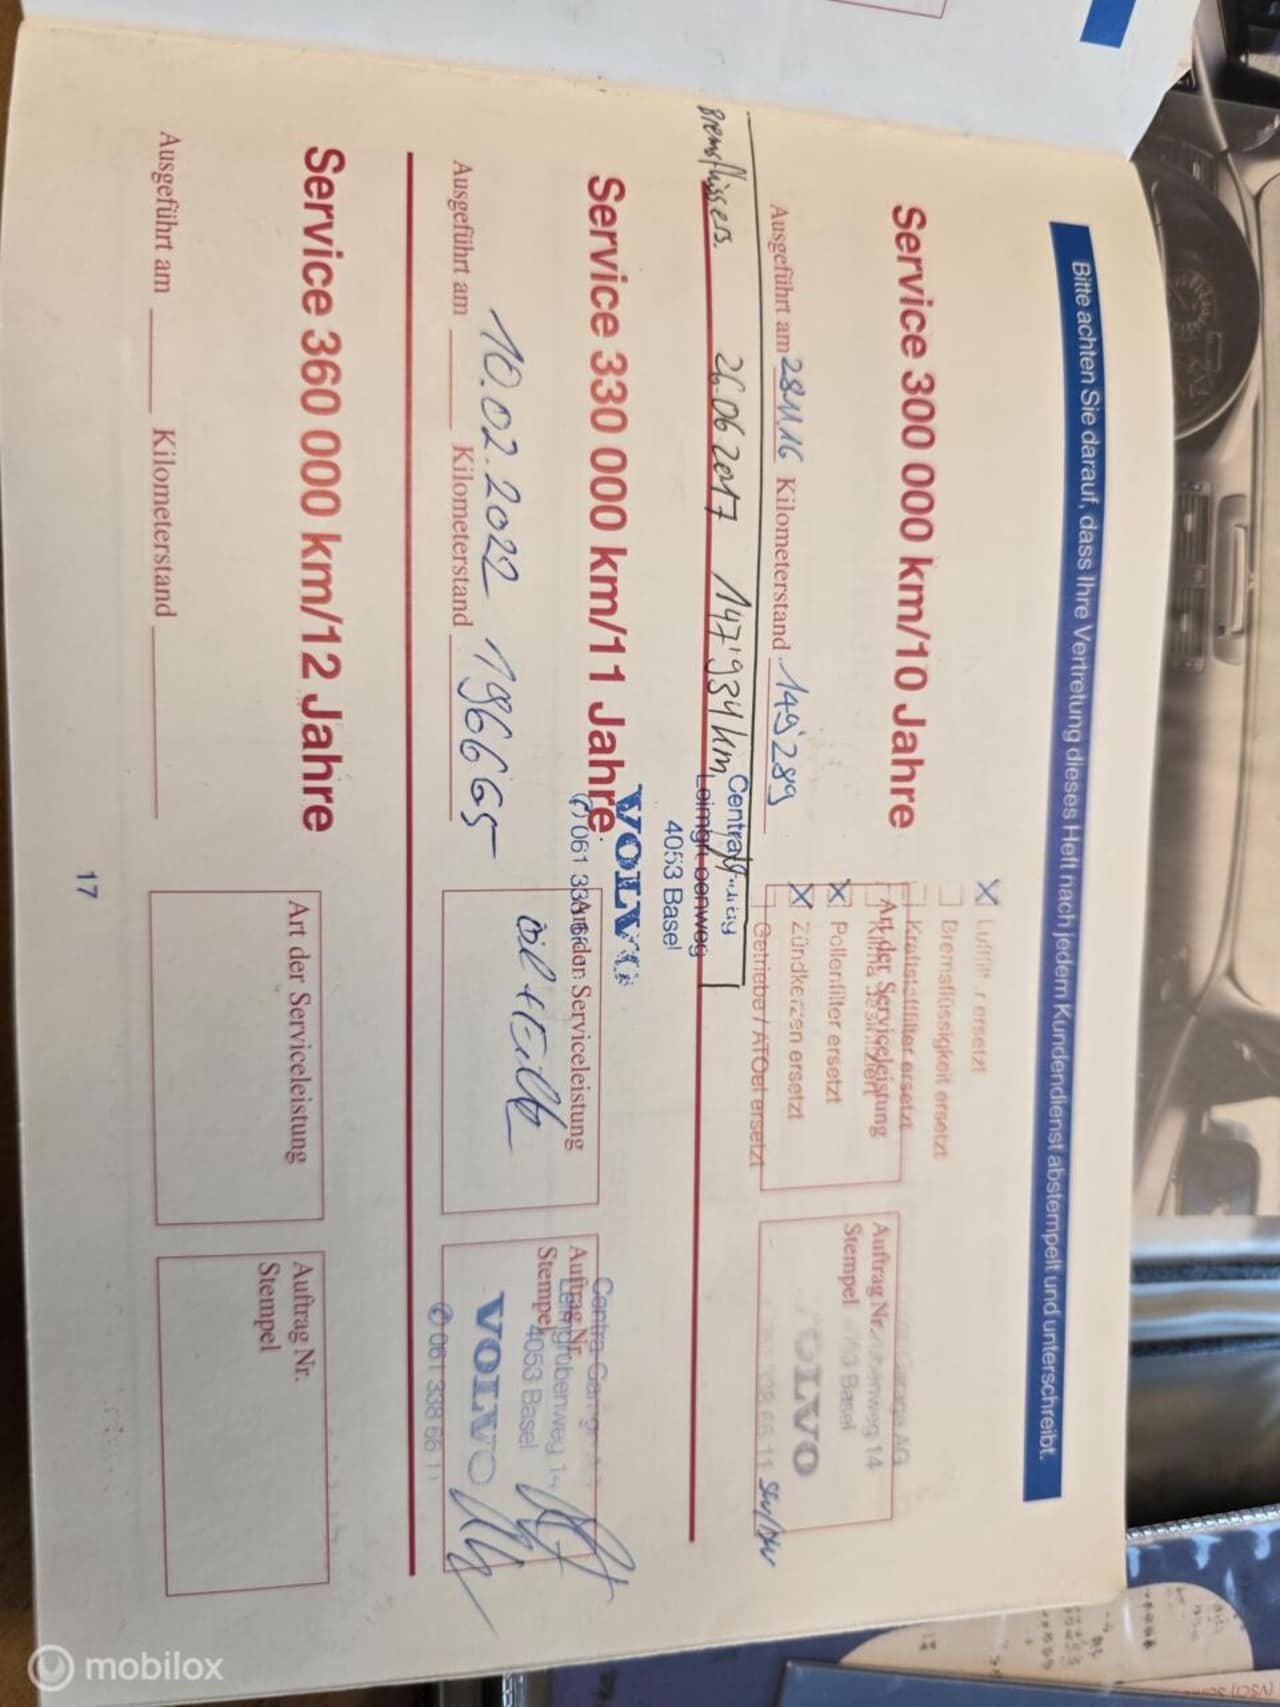 Bitte achten Sie darauf, dass Ihre Vertretung dieses Heft nach jedem Kundendienst abstempelt und unterschreibt.
Service 300 000 km/10 Jahre
Ausgeführt am 28.11.16 Kilometerstand 149'289
X Luftfilter ersetzt
Bremsflüssigkeit ersetzt
Kraftstofffilter ersetzt
Art der Serviceleistung
X Pollenfilter ersetzt
X Zündkerzen ersetzt
Getriebe / ATOel ersetzt
Auftrag Nr.
Stempel
Garage AG
14
4053 Basel
VOLVO
Bremsflüssers. 26.06.2017 147'934 km
4053 Basel
VOLVO
Service 330 000 km/11 Jahre
Ausgeführt am 10.02.2022 Kilometerstand 196665
Art der Serviceleistung
Öl + Filter
Auftrag Nr.
Stempel
Leimgrubenweg 14
4053 Basel
VOLVO
✆ 061 338 66 11
Service 360 000 km/12 Jahre
Ausgeführt am Kilometerstand
Art der Serviceleistung
Auftrag Nr.
Stempel
17
mobilox